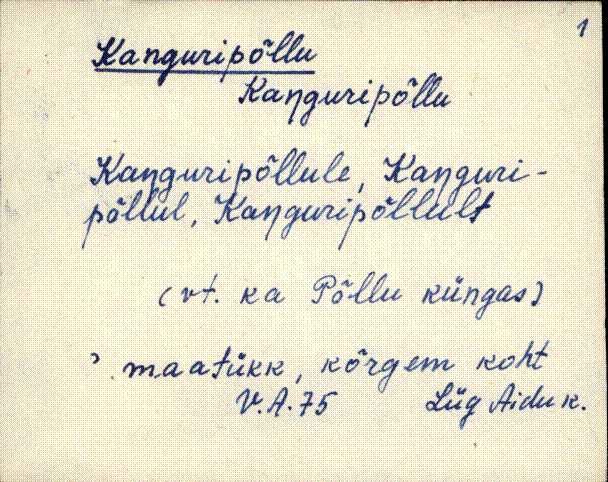 1
Kanguripõllu
Kaŋguripõllu
Kaŋguripõllule, Kaŋguri-
põllul, Kaŋguripõllult
(vt. ka Põllu küngas)
maatükk, kõrgem koht
V.A.75 Lüg Aidu k.